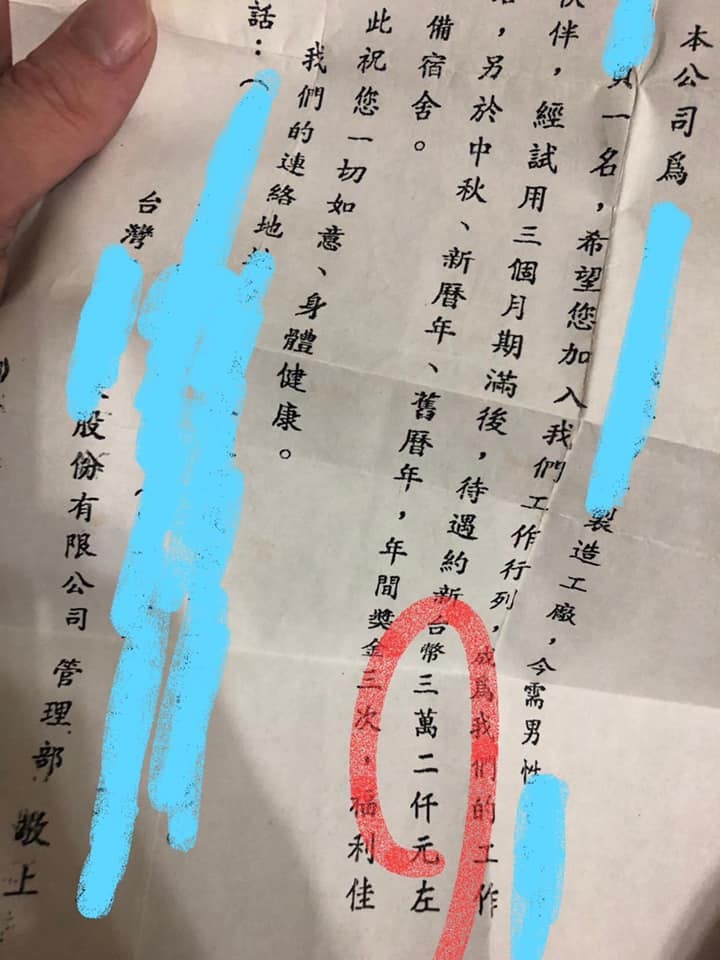 本公司爲製造工廠，今需男性
員一名，希望您加入我們工作行列，成爲我們的工作
伙伴，經試用三個月期滿後，待遇約新台幣三萬二仟元左
，另於中秋、新曆年、舊曆年，年間獎金三次，福利佳
備宿舍。
此祝您一切如意、身體健康。
我們的連絡地
話：（
台灣股份有限公司 管理部 敬上